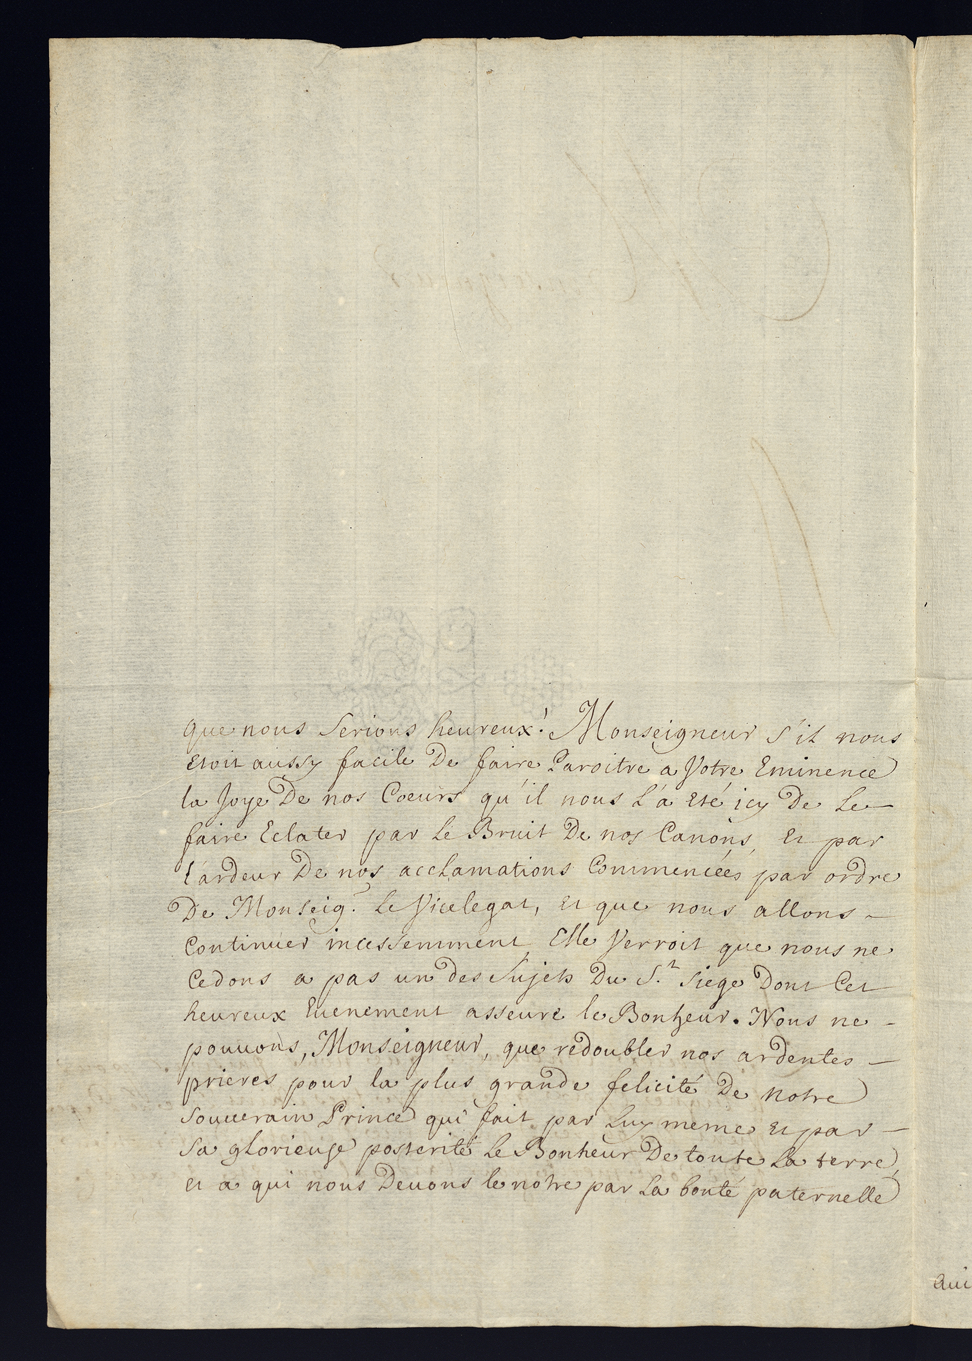 que nous serions heureux! Monseigneur s'il nous
etoit aussy facile De faire Paroitre a Votre Eminence
la Joye De nos Coeurs qu'il nous L'a Eté icy De Le
faire Eclater par Le Bruit De nos Canons, Et par
L'ardeur De nos acclamations Commencées par ordre
De Monseigr. Le Vicelegat, Et que nous allons
Continuer incessemment, Elle Verroit que nous ne
Cedons a pas un des Sujets Du St. Siege Dont Cet
heureux Evenement asseure le Bonheur. Nous ne
pouuons, Monseigneur, que redoubler nos ardentes
prieres pour la plus grande felicité De notre
Souuerain Prince qui fait par Luy meme Et par
Sa glorieuse posterité Le Bonheur De toute La terre,
Et a qui nous Deuons le nôtre par La bonté paternelle
qui